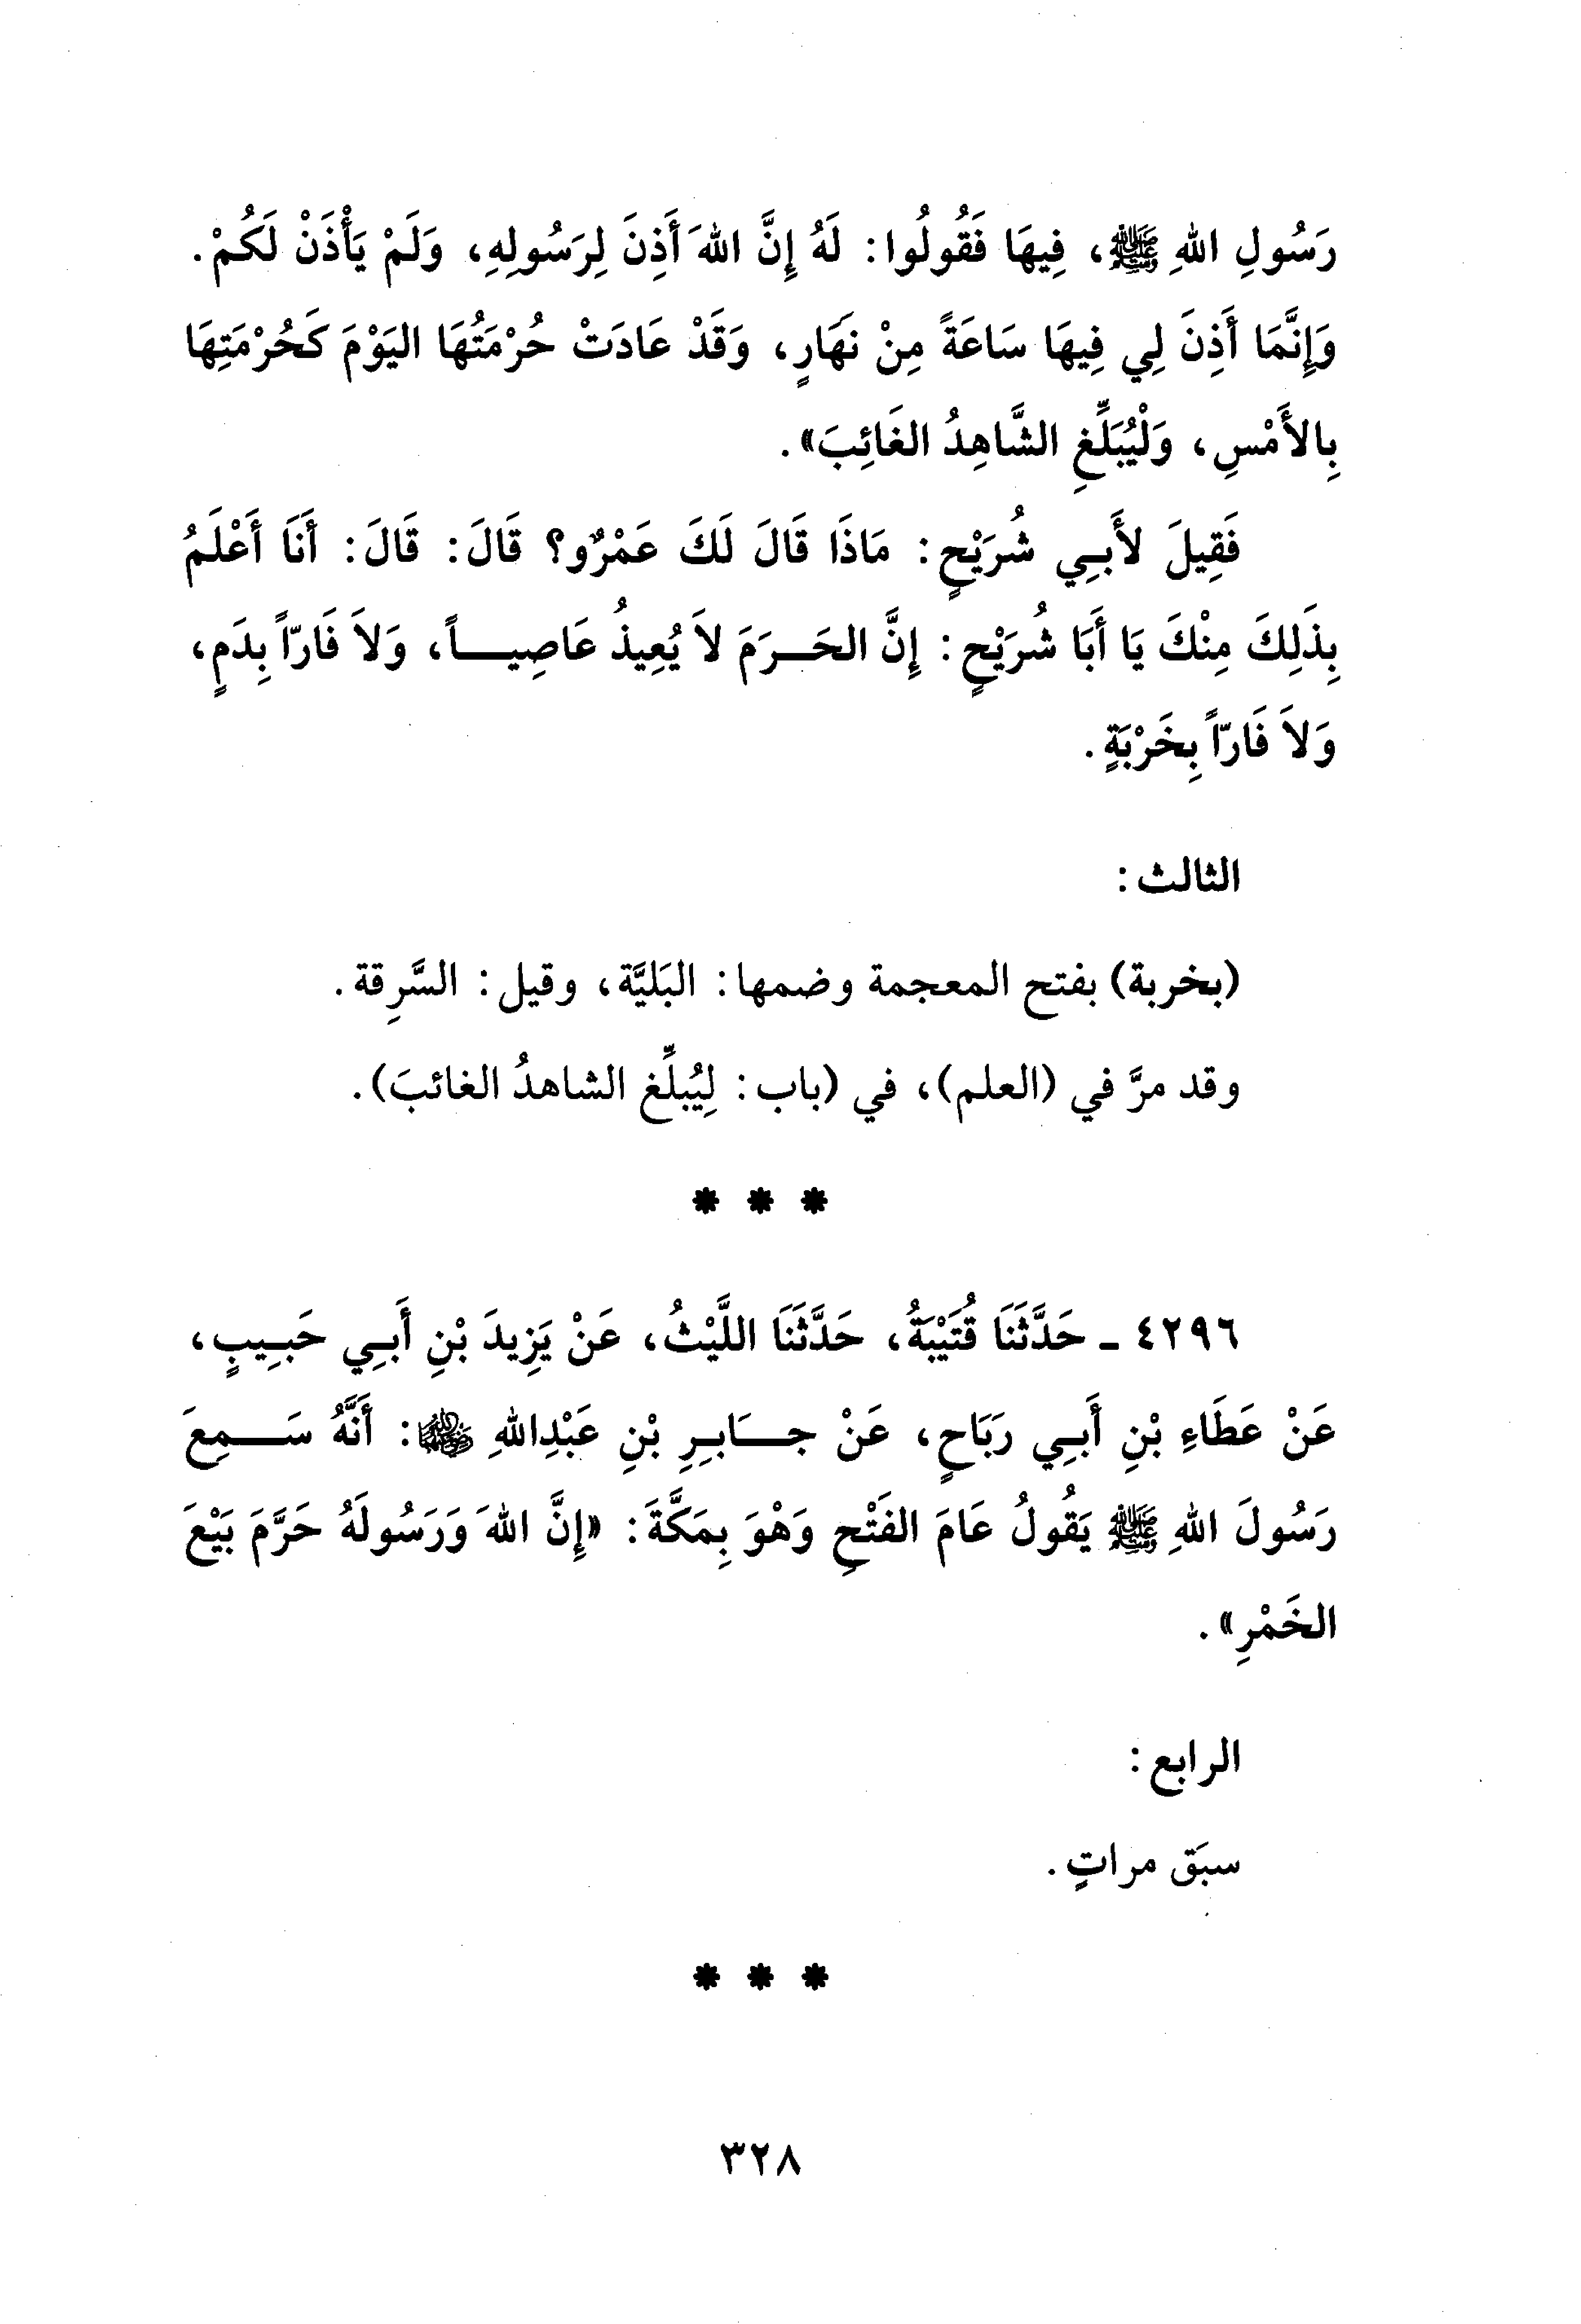 رَسُولِ اللهِ ﷺ، فِيهَا فَقُولُوا: لَهُ إِنَّ اللهَ أَذِنَ لِرَسُولِهِ، وَلَمْ يَأْذَنْ لَكُمْ.
وَإِنَّمَا أَذِنَ لِي فِيهَا سَاعَةً مِنْ نَهَارٍ، وَقَدْ عَادَتْ حُرْمَتُهَا اليَوْمَ كَحُرْمَتِهَا
بِالأَمْسِ، وَلْيُبَلِّغِ الشَّاهِدُ الغَائِبَ».
فَقِيلَ لأَبِي شُرَيْحٍ: مَاذَا قَالَ لَكَ عَمْرٌو؟ قَالَ: قَالَ: أَنَا أَعْلَمُ
بِذَلِكَ مِنْكَ يَا أَبَا شُرَيْحٍ: إِنَّ الحَرَمَ لاَ يُعِيذُ عَاصِياً، وَلاَ فَارّاً بِدَمٍ،
وَلاَ فَارّاً بِخَرْبَةٍ.
الثالث:
(بخربة) بفتح المعجمة وضمها: البَليَّة، وقيل: السَّرِقة.
وقد مرَّ في (العلم)، في (باب: لِيُبلِّغ الشاهدُ الغائبَ).
* * *
٤٢٩٦ - حَدَّثَنَا قُتَيْبَةُ، حَدَّثَنَا اللَّيْثُ، عَنْ يَزِيدَ بْنِ أَبِي حَبِيبٍ،
عَنْ عَطَاءِ بْنِ أَبِي رَبَاحٍ، عَنْ جَابِرِ بْنِ عَبْدِاللهِ ﵄: أَنَّهُ سَمِعَ
رَسُولَ اللهِ ﷺ يَقُولُ عَامَ الفَتْحِ وَهْوَ بِمَكَّةَ: «إِنَّ اللهَ وَرَسُولَهُ حَرَّمَ بَيْعَ
الخَمْرِ».
الرابع:
سبَق مراتٍ.
* * *
٣٢٨